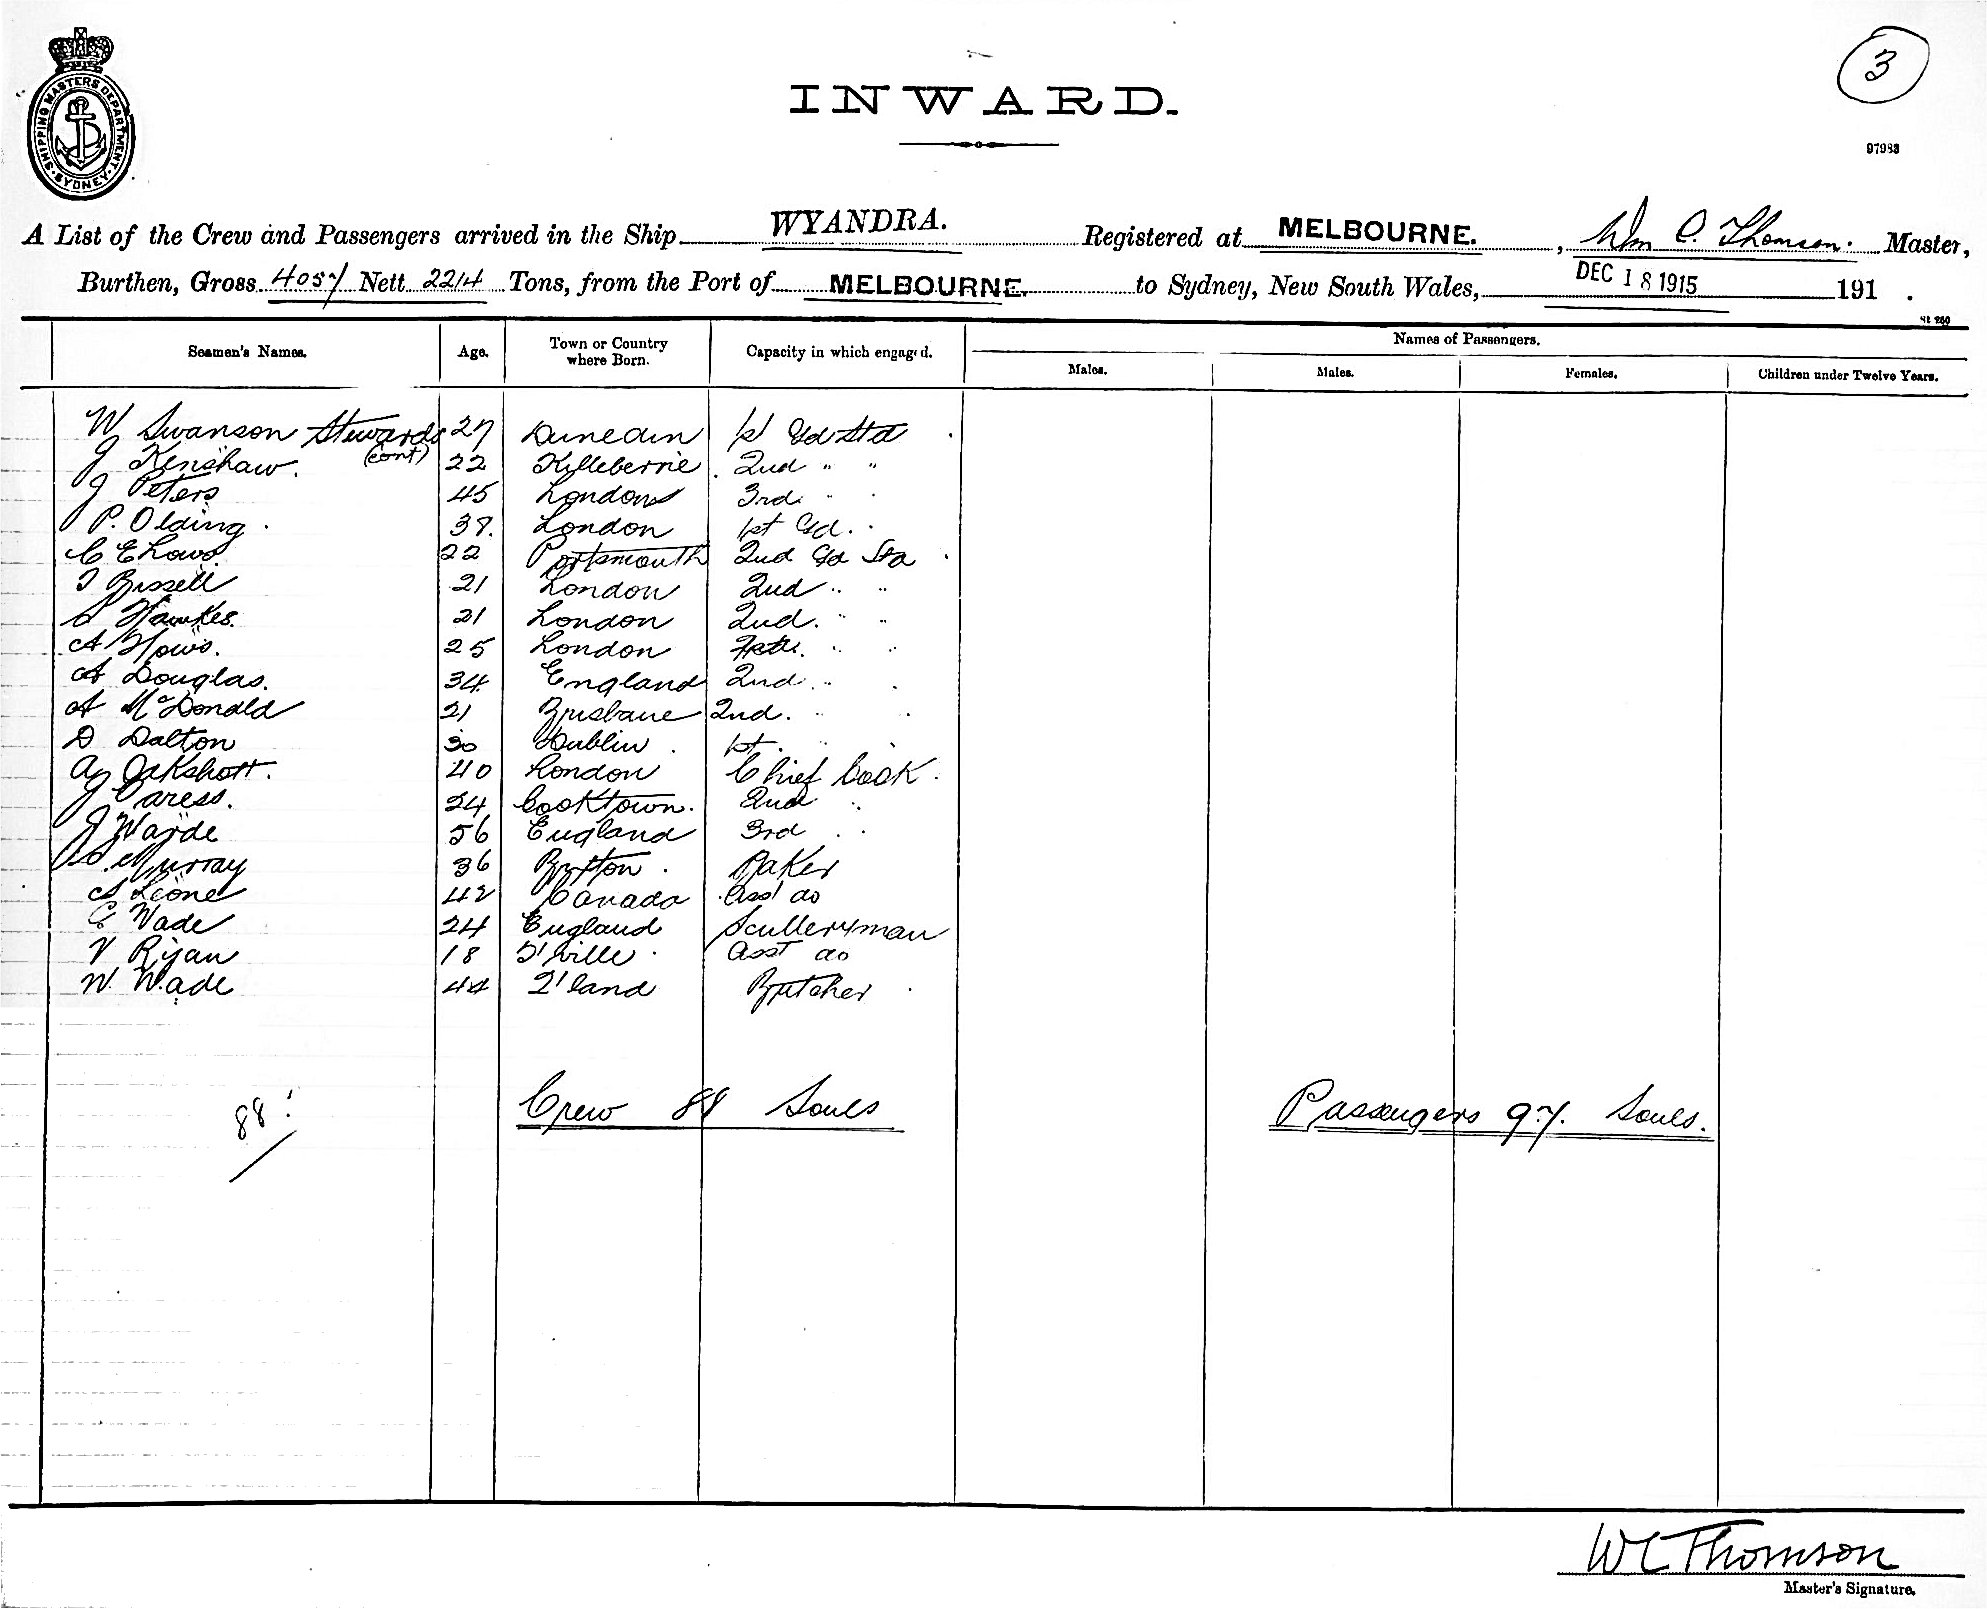 3
SHIPPING MASTERS DEPARTMENT SYDNEY
INWARD.
97983
A List of the Crew and Passengers arrived in the Ship WYANDRA. Registered at MELBOURNE. , Wm C. Thomson. Master,
Burthen, Gross 4057 Nett 2214 Tons, from the Port of MELBOURNE. to Sydney, New South Wales, DEC 18 1915 191 .
Seamen's Names. Age. Town or Country where Born. Capacity in which engaged. Names of Passengers.
Males. Males. Females. Children under Twelve Years.
W Swanson Stewards (cont) 27 Dunedin 1st
J Renshaw. 22 2nd " "
J Peters 45 London 3rd " "
P. Olding 38. London 1st
C E Lows 22 Portsmouth 2nd
T Bissell 21 London 2nd " "
Hawkes. 21 London 2nd. " "
A Hows. 25 London " "
A Douglas. 34 England 2nd " "
A McDonald 21 Brisbane 2nd. " "
D Dalton 30 Dublin 1st " "
Oakshott. 40 London Chief Cook
J Caress. 24 Cooktown. 2nd "
J Warde 56 England 3rd " "
Murray 36 Baker
A Leone 42 Canada Asst do
C Wade 24 England Sculleryman
V Ryan 18 T'ville Asst do
W. Wade 44 Q'land Butcher
88 Crew 88 Souls Passengers 97. Souls.
W C Thomson
Master's Signature.